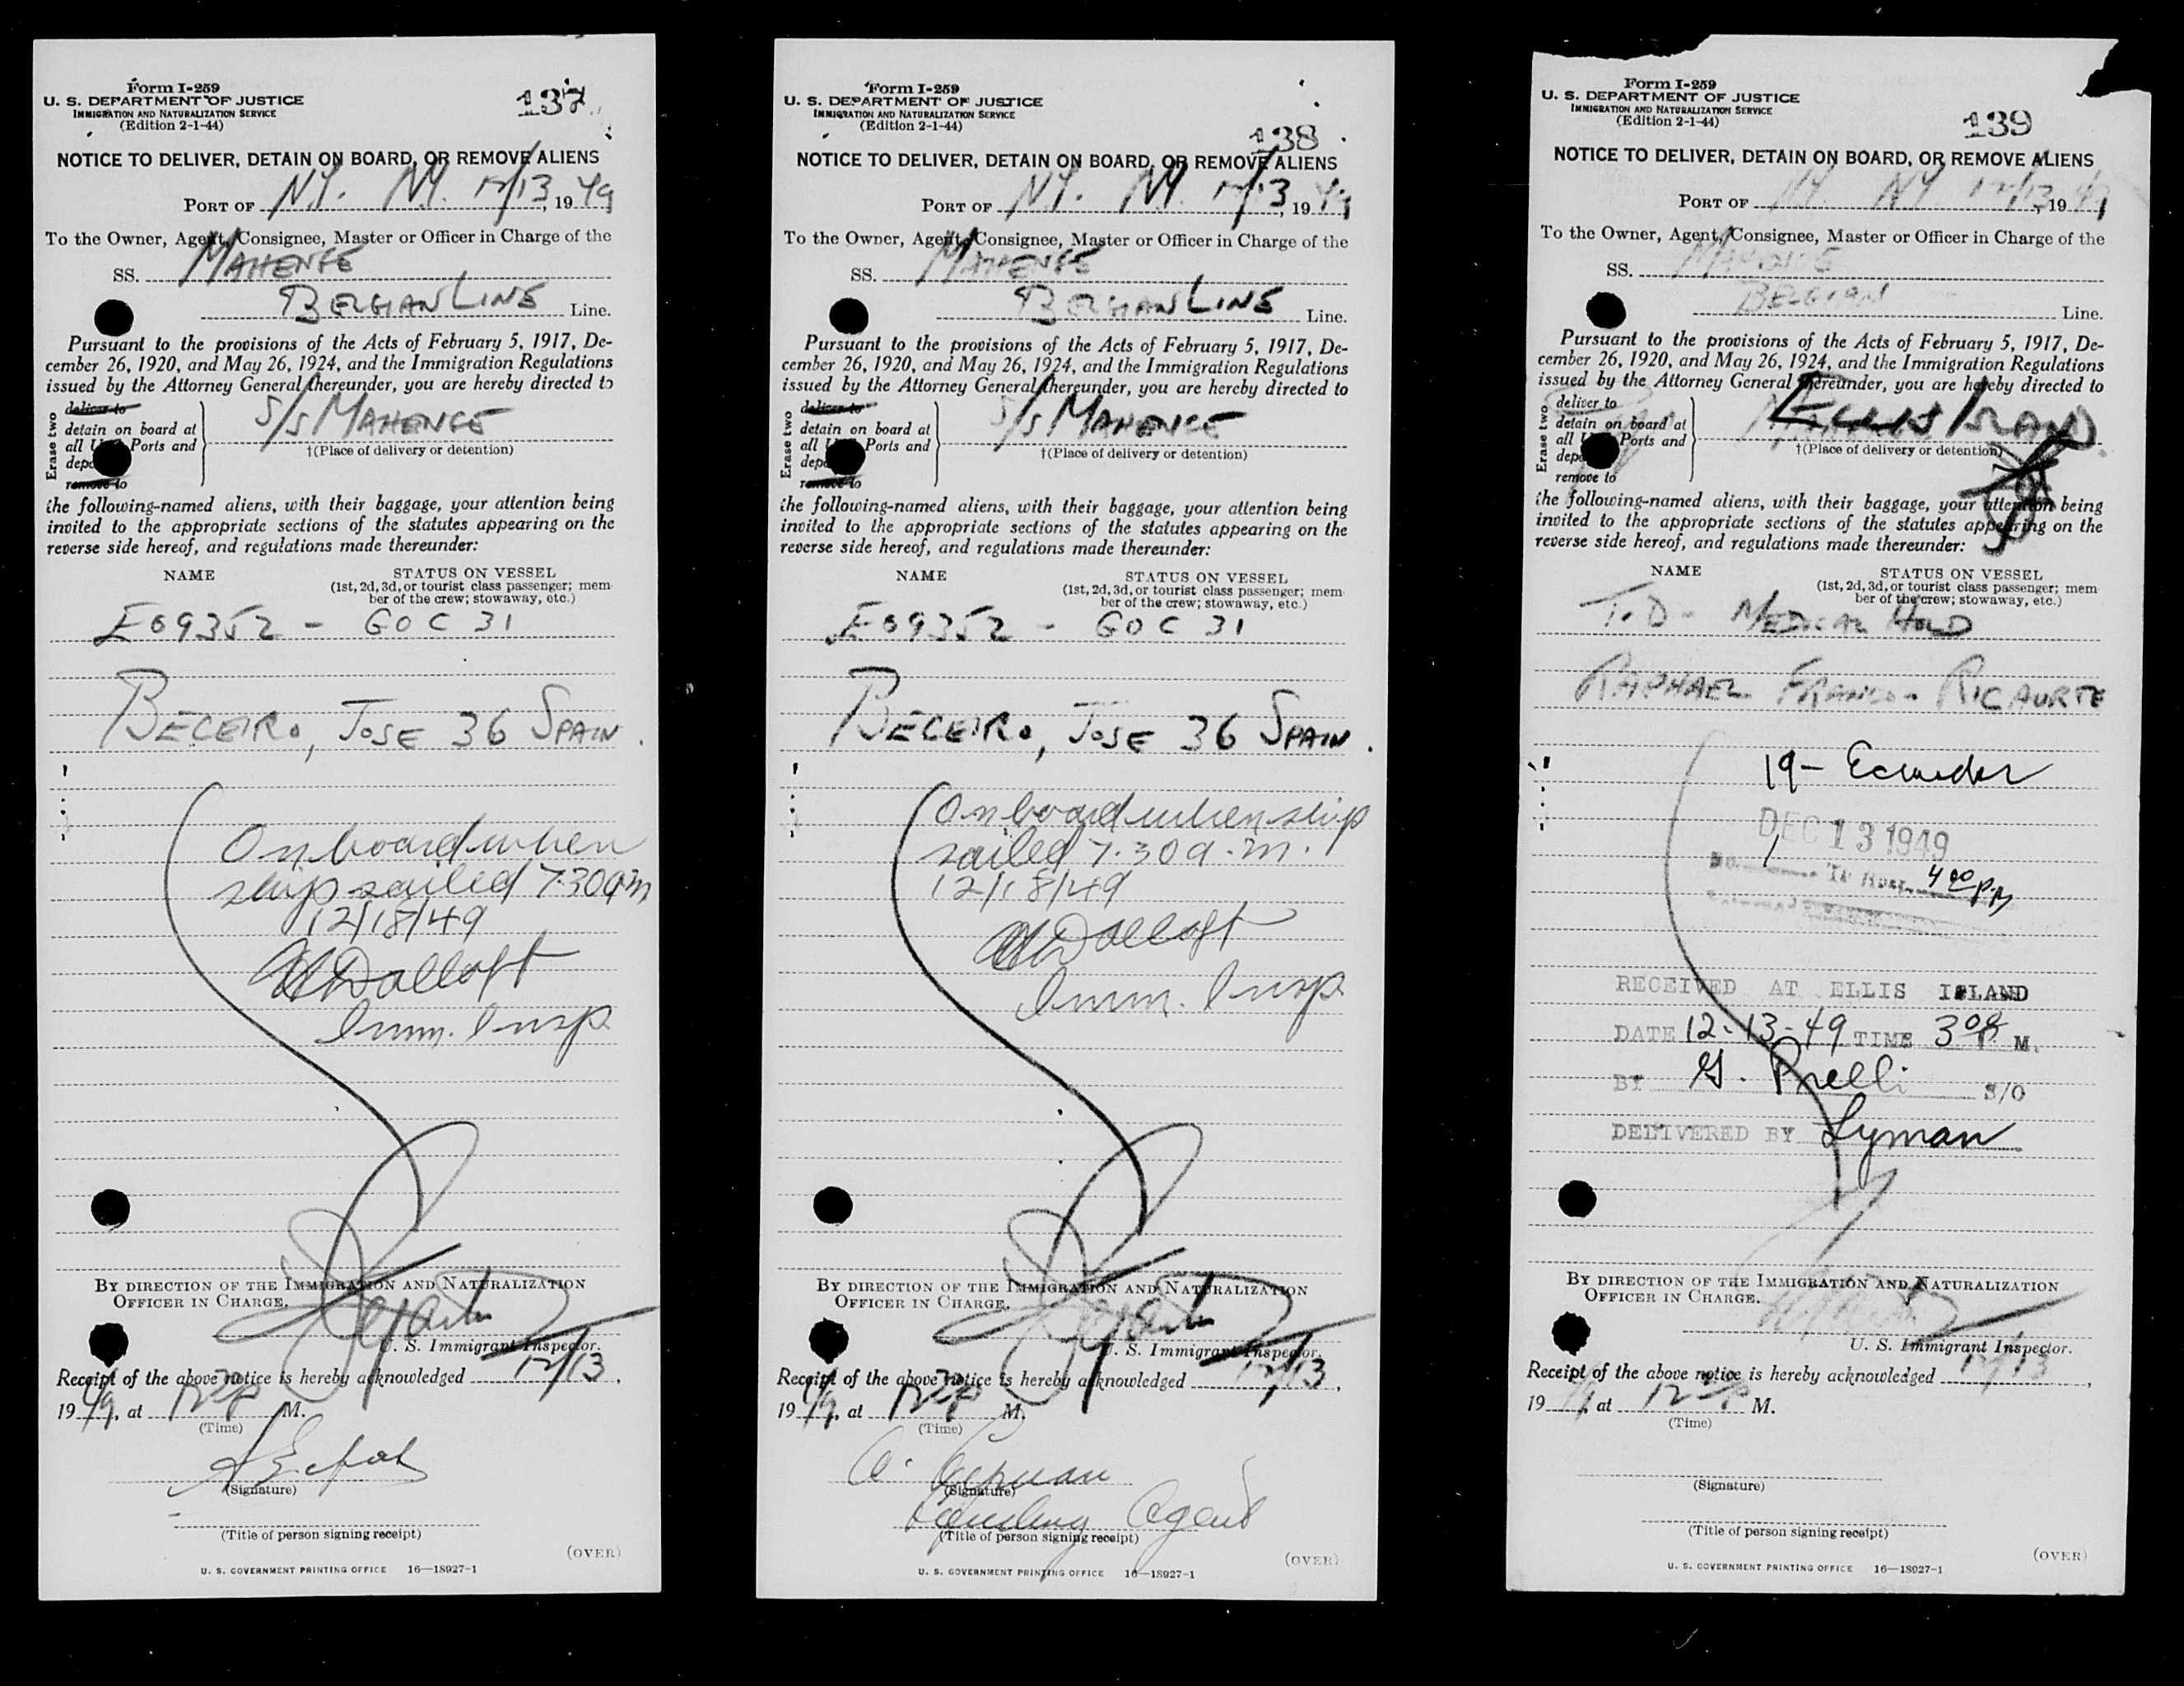 Form I-259
U. S. DEPARTMENT OF JUSTICE
IMMIGRATION AND NATURALIZATION SERVICE
(Edition 2-1-44)
137
NOTICE TO DELIVER, DETAIN ON BOARD, OR REMOVE ALIENS
PORT OF N.Y. N.Y. 12/13, 1949
To the Owner, Agent, Consignee, Master or Officer in Charge of the
SS. MAHENGE
BELGIAN LINE Line.
Pursuant to the provisions of the Acts of February 5, 1917, De-
cember 26, 1920, and May 26, 1924, and the Immigration Regulations
issued by the Attorney General thereunder, you are hereby directed to
Erase two
deliver to
detain on board at
all Ports and
remove to
S/S MAHENGE
†(Place of delivery or detention)
the following-named aliens, with their baggage, your attention being
invited to the appropriate sections of the statutes appearing on the
reverse side hereof, and regulations made thereunder:
NAME STATUS ON VESSEL
(1st, 2d, 3d, or tourist class passenger; mem-
ber of the crew; stowaway, etc.)
E09352 - GOC 31
BECEIRO, JOSE 36 SPAIN.
On board when
ship sailed 7.30 am
12/18/49
Imm. Insp.
BY DIRECTION OF THE IMMIGRATION AND NATURALIZATION
OFFICER IN CHARGE.
U. S. Immigrant Inspector.
Receipt of the above notice is hereby acknowledged 12/13,
1949, at M.
(Time)
(Signature)
(Title of person signing receipt)
(OVER)
U. S. GOVERNMENT PRINTING OFFICE 16—18927-1
Form I-259
U. S. DEPARTMENT OF JUSTICE
IMMIGRATION AND NATURALIZATION SERVICE
(Edition 2-1-44)
138
NOTICE TO DELIVER, DETAIN ON BOARD, OR REMOVE ALIENS
PORT OF N.Y. N.Y. 12/13, 1949
To the Owner, Agent, Consignee, Master or Officer in Charge of the
SS. MAHENGE
BELGIAN LINE Line.
Pursuant to the provisions of the Acts of February 5, 1917, De-
cember 26, 1920, and May 26, 1924, and the Immigration Regulations
issued by the Attorney General thereunder, you are hereby directed to
Erase two
deliver to
detain on board at
all Ports and
remove to
S/S MAHENGE
†(Place of delivery or detention)
the following-named aliens, with their baggage, your attention being
invited to the appropriate sections of the statutes appearing on the
reverse side hereof, and regulations made thereunder:
NAME STATUS ON VESSEL
(1st, 2d, 3d, or tourist class passenger; mem-
ber of the crew; stowaway, etc.)
E09352 - GOC 31
BECEIRO, JOSE 36 SPAIN.
On board when ship
sailed 7.30 a.m.
12/18/49
Imm. Insp.
BY DIRECTION OF THE IMMIGRATION AND NATURALIZATION
OFFICER IN CHARGE.
U. S. Immigrant Inspector.
Receipt of the above notice is hereby acknowledged 12/13,
1949, at M.
(Time)
(Signature)
Agent
(Title of person signing receipt)
(OVER)
U. S. GOVERNMENT PRINTING OFFICE 16—18927-1
Form I-259
U. S. DEPARTMENT OF JUSTICE
IMMIGRATION AND NATURALIZATION SERVICE
(Edition 2-1-44)
139
NOTICE TO DELIVER, DETAIN ON BOARD, OR REMOVE ALIENS
PORT OF N.Y. N.Y. 12/13, 1949
To the Owner, Agent, Consignee, Master or Officer in Charge of the
SS.
BELGIAN Line.
Pursuant to the provisions of the Acts of February 5, 1917, De-
cember 26, 1920, and May 26, 1924, and the Immigration Regulations
issued by the Attorney General thereunder, you are hereby directed to
Erase two
deliver to
detain on board at
all Ports and
remove to
ELLIS ISLAND
†(Place of delivery or detention)
the following-named aliens, with their baggage, your attention being
invited to the appropriate sections of the statutes appearing on the
reverse side hereof, and regulations made thereunder:
NAME STATUS ON VESSEL
(1st, 2d, 3d, or tourist class passenger; mem-
ber of the crew; stowaway, etc.)
T.D - MEDICAL HOLD
RAPHAEL FRANCO - RICAURTE
19 - Ecuador
DEC 13 1949
4 00 P.M
RECEIVED AT ELLIS ISLAND
DATE 12-13-49 TIME 3 08 P M.
BY G. Prelli S/O
DELIVERED BY Lyman
BY DIRECTION OF THE IMMIGRATION AND NATURALIZATION
OFFICER IN CHARGE.
U. S. Immigrant Inspector.
Receipt of the above notice is hereby acknowledged 12/13,
19 at M.
(Time)
(Signature)
(Title of person signing receipt)
(OVER)
U. S. GOVERNMENT PRINTING OFFICE 16—18927-1